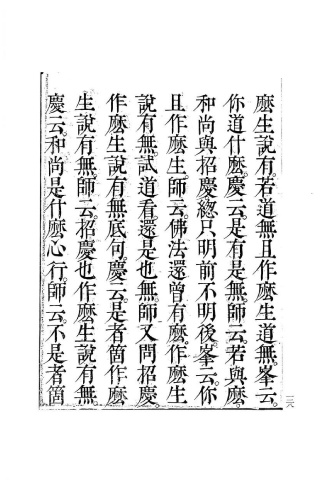 麽生說有若道無且作麽生道無峯云
你道什麽慶云是有是無師云若與麽
和尚與招慶緫只明前不明後峯云你
且作麽生師云佛法還曾有麽作麽生
說有無試道看還是也無師又問招慶
作麽生說有無底何慶云是者箇作麽
生說有無師云招慶也作麽生說有無
慶云和尚是什麽心行師云不是者箇
三六